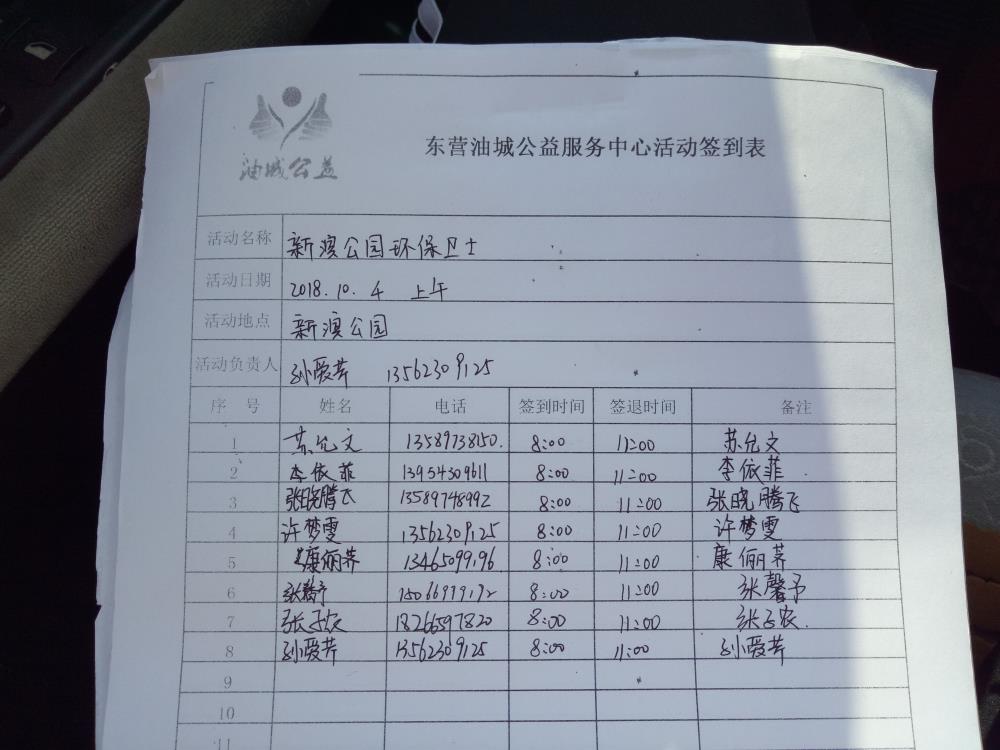 油城公益
东营油城公益服务中心活动签到表
活动名称 新澳公园环保卫士
活动日期 2018.10.4 上午
活动地点 新澳公园
活动负责人 孙爱芹 13562309125
序号 姓名 电话 签到时间 签退时间 备注
1 苏允文 13589738150. 8:00 11:00 苏允文
2 李依菲 13954309611 8:00 11:00 李依菲
3 张晓腾飞 13589748992 8:00 11:00 张晓腾飞
4 许梦雯 13562309125 8:00 11:00 许梦雯
5 康俪荞 13465099196 8:00 11:00 康俪荞
6 张馨予 8:00 11:00 张馨予
7 张子农 18266597820 8:00 11:00 张子农
8 孙爱芹 13562309125 8:00 11:00 孙爱芹
9
10
11